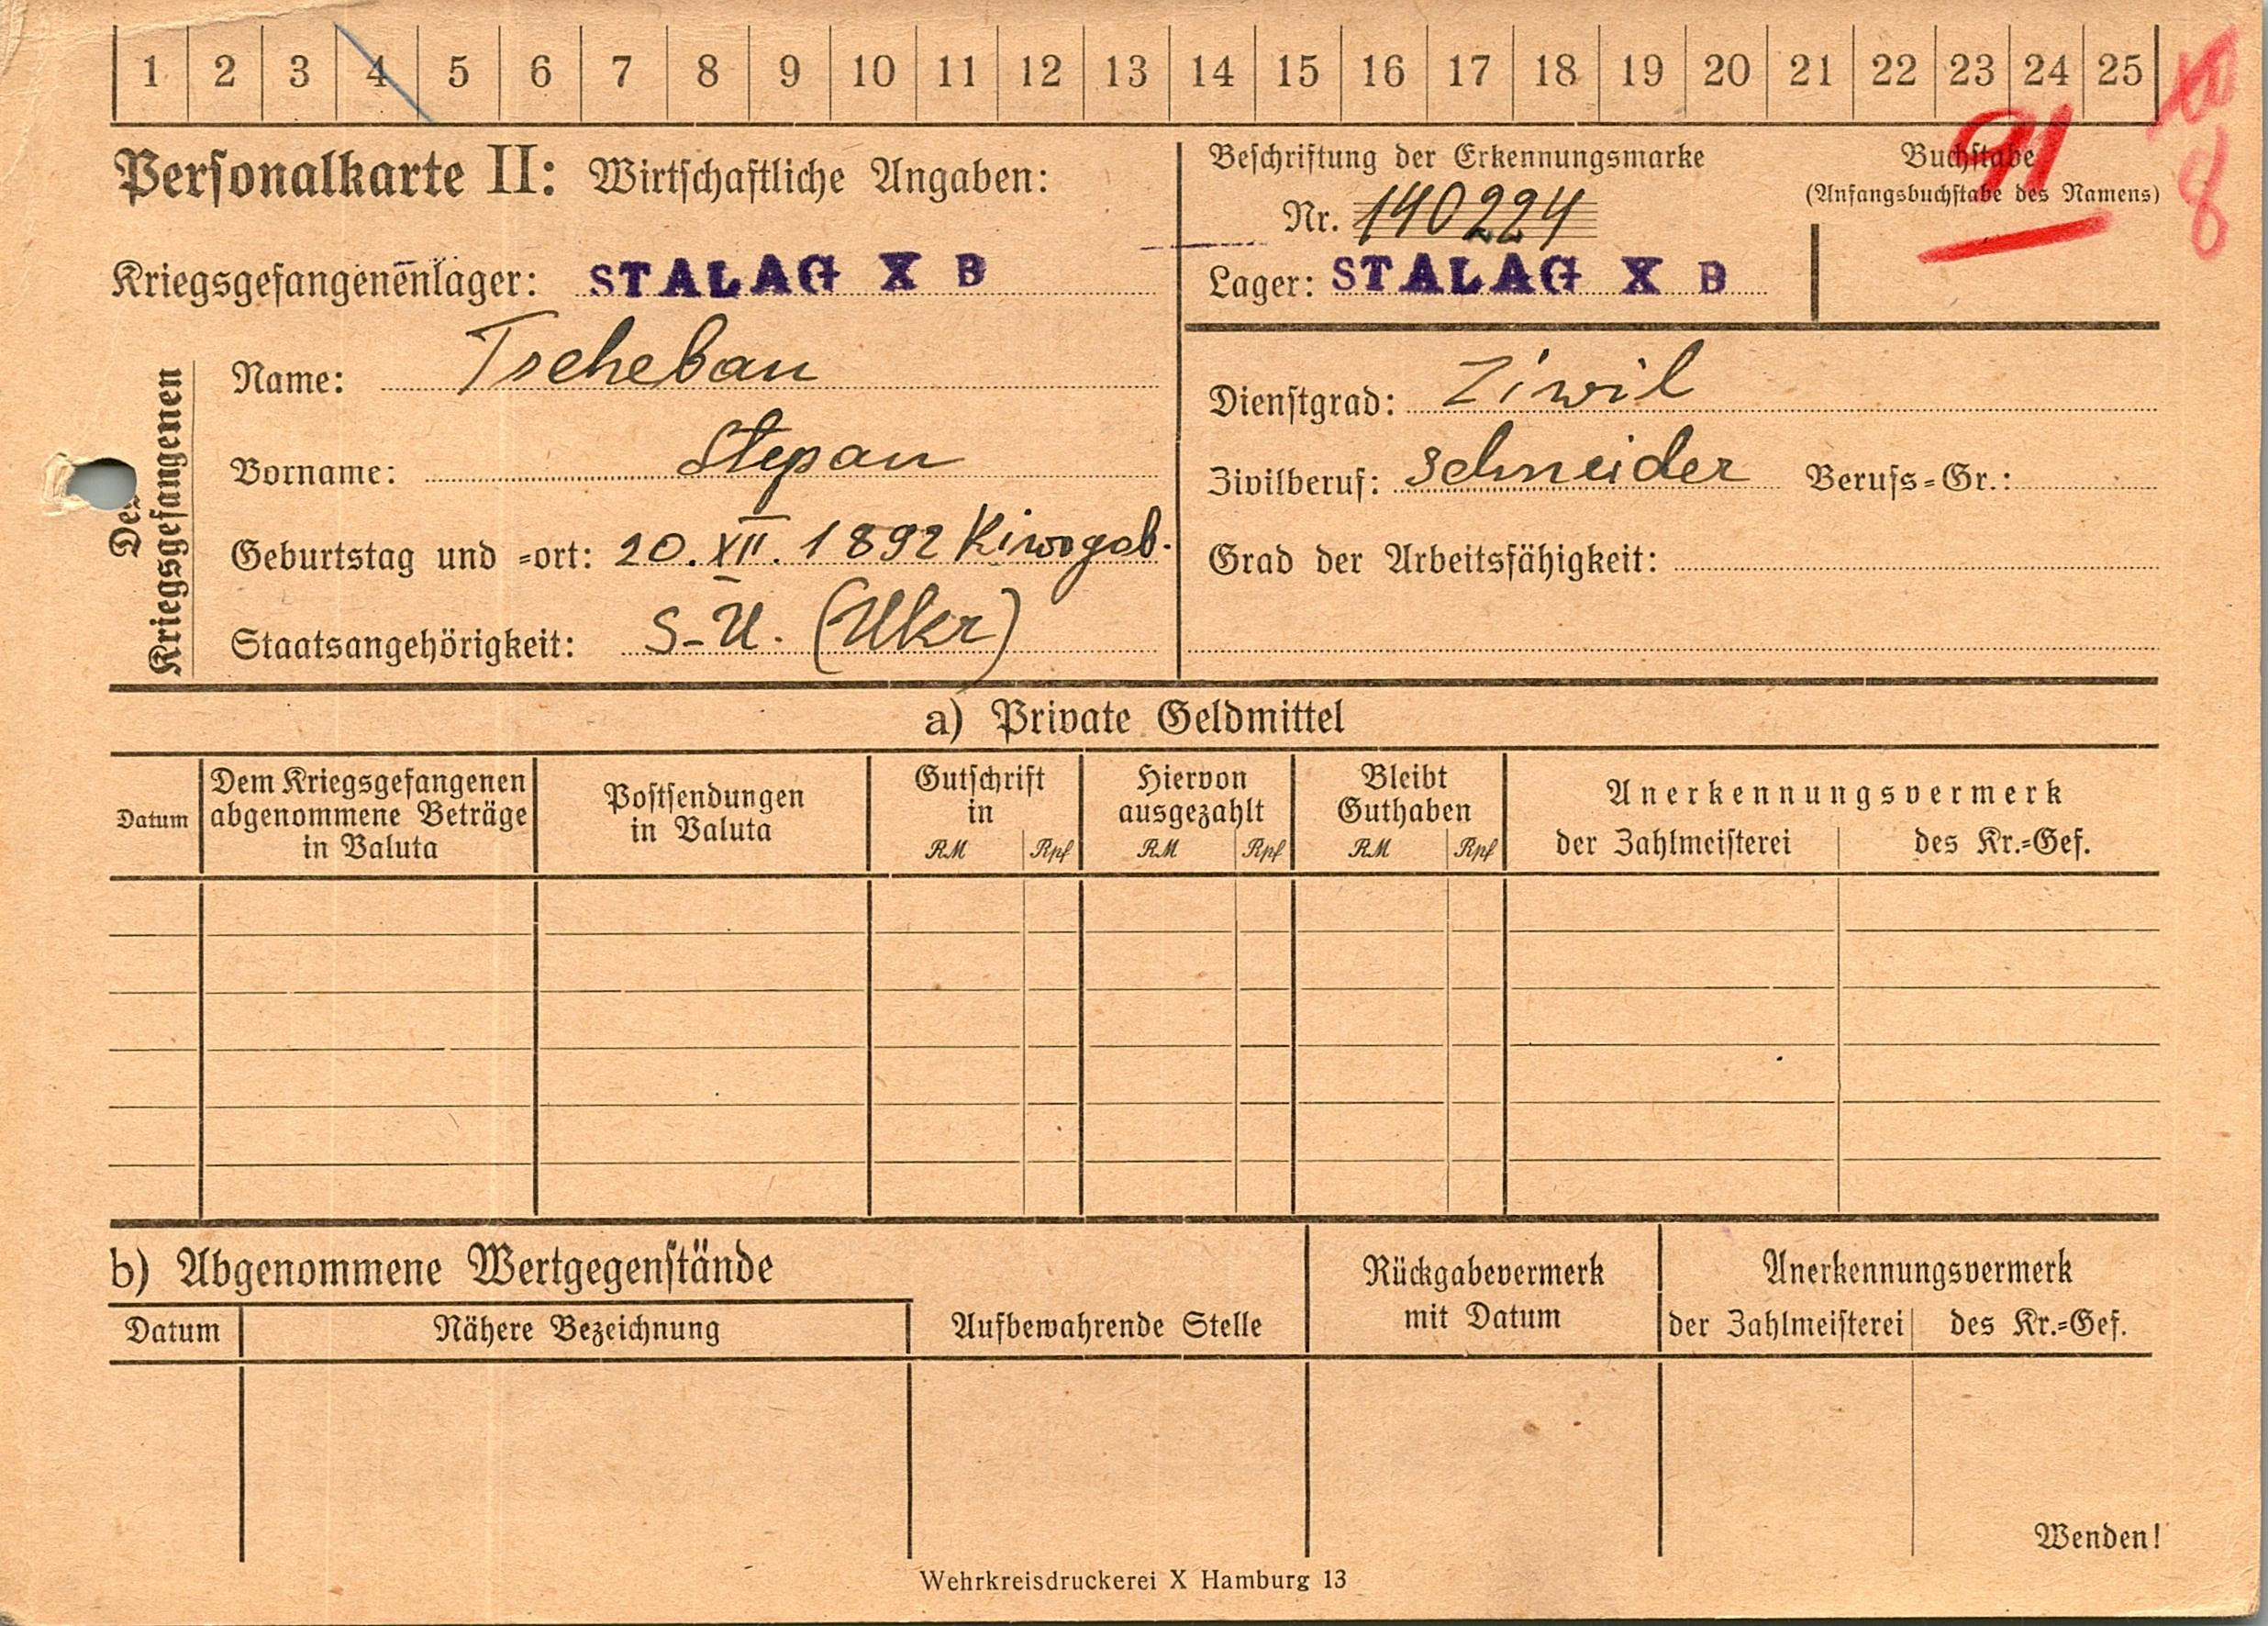 1 2 3 4 5 6 7 8 9 10 11 12 13 14 15 16 17 18 19 20 21 22 23 24 25
Personalkarte II: Wirtschaftliche Angaben:
Beschriftung der Erkennungsmarke
Nr. 140224
Lager: STALAG X B
Buchstabe
(Anfangsbuchstabe des Namens)
91
8
Kriegsgefangenenlager: STALAG X B
Des Kriegsgefangenen
Name: Tschebau
Vorname: Stepan
Geburtstag und =ort: 20. XII. 1892 Kiwogob.
Staatsangehörigkeit: S-U. (Ukr)
Dienstgrad: Ziwil
Zivilberuf: Schneider Berufs=Gr.:
Grad der Arbeitsfähigkeit:
a) Private Geldmittel
Datum
Dem Kriegsgefangenen
abgenommene Beträge
in Valuta
Postsendungen
in Valuta
Gutschrift
in
RM Rpf
Hiervon
ausgezahlt
RM Rpf
Bleibt
Guthaben
RM Rpf
Anerkennungsvermerk
der Zahlmeisterei des Kr.=Gef.
b) Abgenommene Wertgegenstände
Datum Nähere Bezeichnung
Aufbewahrende Stelle
Rückgabevermerk
mit Datum
Anerkennungsvermerk
der Zahlmeisterei des Kr.=Gef.
Wenden!
Wehrkreisdruckerei X Hamburg 13